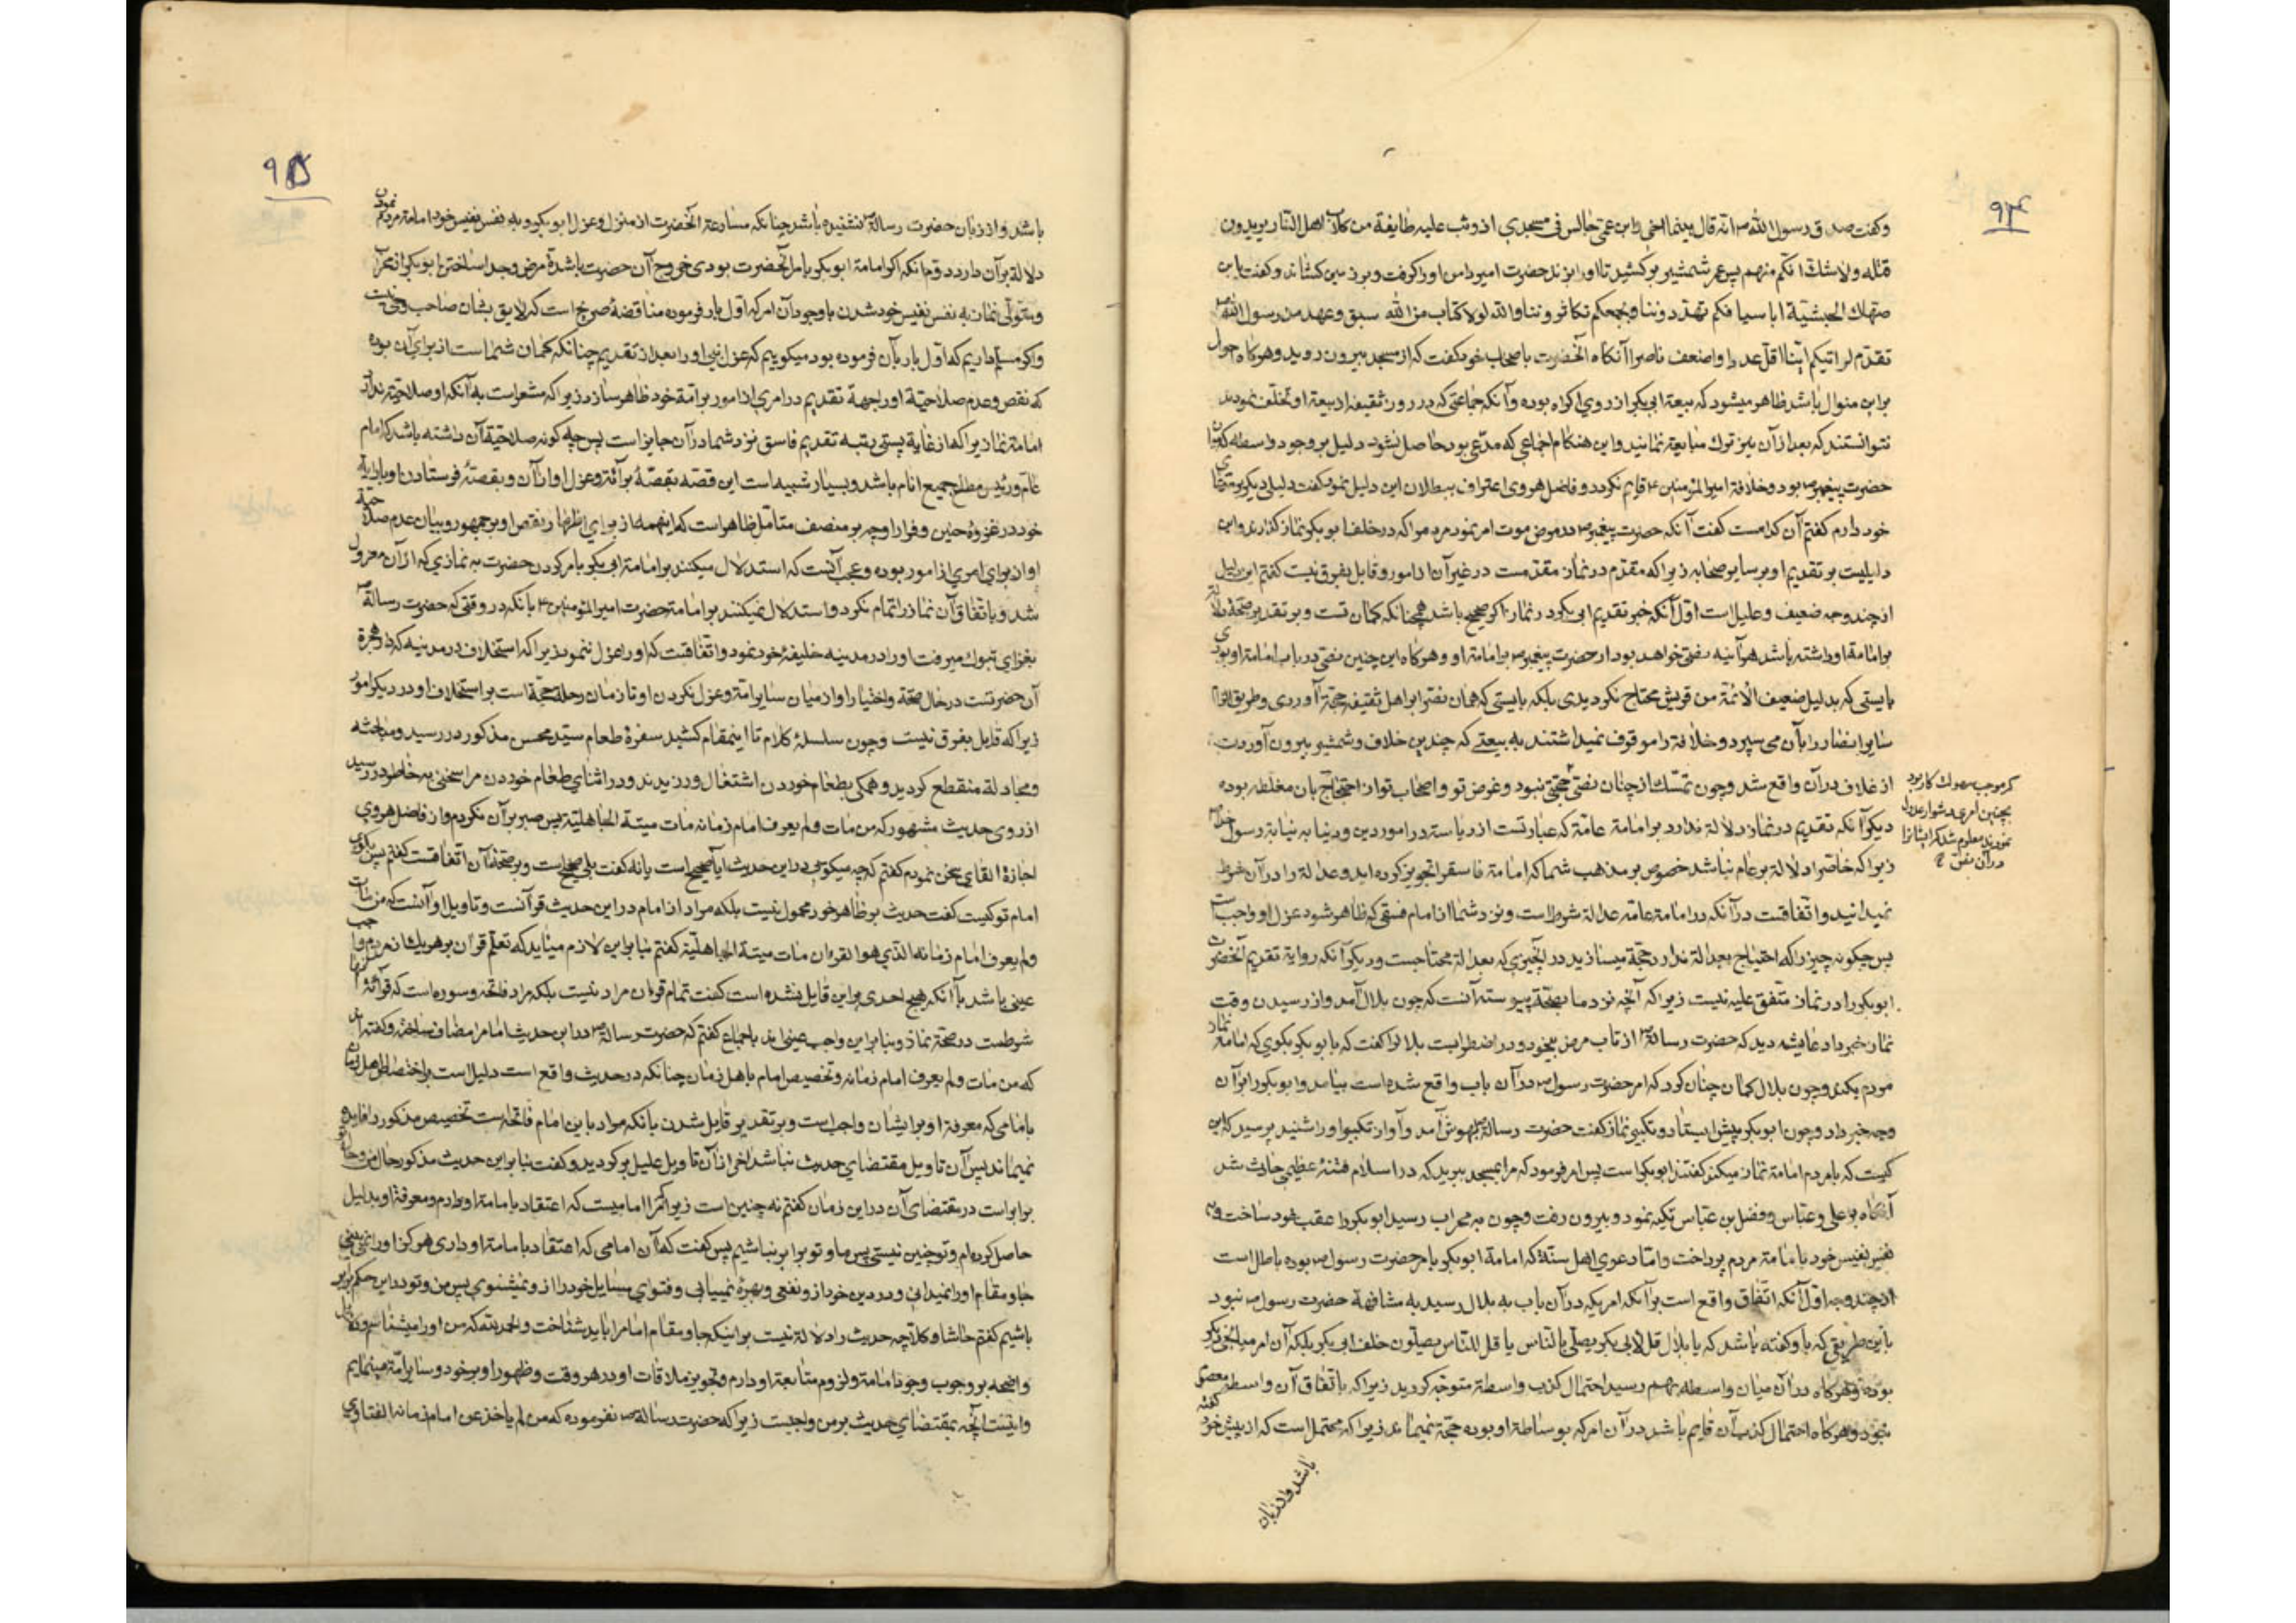 ۹۲۴
وگفت صدق رسول الله ص انه قال بینما اخی وابن عمی جالس فی مسجدی اذ وثب علیه طایفة من کلاب اهل النار یریدون
قتله ولا شک انکم منهم پس عمر شمشیر برکشید تا او را بزند حضرت امیر دامن او را گرفت و بر زمین کشاند و گفت یابن
صهاک الحبشیة ابا سیافکم تهددوننا وبجمعکم تکاثروننا والله لولا کتاب من الله سبق وعهد من رسول الله
تقدم لاریتکم اینا اقل عددا واضعف ناصرا آنگاه آنحضرت باصحاب خود گفت که از مسجد بیرون روید و هرگاه حال
براین منوال باشد ظاهر میشود که بیعة ابی بکر از روی اکراه بوده و آنکه جماعتی که در روز ثقیفه از بیعة او تخلف نمودند
نتوانستند که بعد از آن نیز ترک متابعة نمایند و این هنگام اجماعی که مدعی بود حاصل نشود دلیل بر وجود واسطه که
حضرت پیغمبر ص بود وخلافة امیرالمؤمنین ع قایم نگردد و فاضل هروی اعتراف ببطلان این دلیل نمود گفت دلیلی دیگر بر مدعای
خود دارم گفتم آن کدامست گفت آنکه حضرت پیغمبر ص در مرض موت امر نمود مردم را که در خلف ابوبکر نماز گذارند و این
دلیلیست بر تقدیم او بر سایر صحابه زیرا که مقدم در نماز مقدمست در غیر آن از امور و قایل بفرق نیست گفتم این دلیل
از چند وجه ضعیف و علیل است اول آنکه خبر تقدیم ابی بکر در نماز اگر صحیح باشد همچنانکه گمان تست و بر تقدیر صحة دلالة
بر امامة او داشته باشد هرآینه نصی خواهد بود از حضرت پیغمبر ص بر امامة او و هرگاه این چنین نصی در باب امامة او بودی
بایستی که بدلیل ضعیف الائمة من قریش محتاج نگردیدی بلکه بایستی که همان نص را بر اهل ثقیفه حجة آوردی و طریق الزام
سایر انصار را بآن می سپرد و خلافة را موقوف نمیداشتند به بیعتی که چندین خلاف و شمشیر بیرون آوردن
از غلاف در آن واقع شد و چون تمسک از چنان نصی محجتی نبود و غرض تو و اصحاب تو از احتجاج بان مغلطه بوده
دیگر آنکه تقدیم در نماز دلالة ندارد بر امامة عامة که عبارتست از ریاسة در امور دین و دنیا به نیابة رسول خدا ص
زیرا که خاص را دلالة بر عام نباشد خصوص بر مذهب شما که امامة فاسق را تجویز کرده اید و عدالة را در آن شرط
نمیدانید و اتفاقست در آنکه در امامة عامه عدالة شرط است و نزد شما از امام فسقی که ظاهر شود عزل او واجب است
پس چگونه چیزی را که احتیاج بعدالة ندارد حجة میسازید در آنچیزی که بعدالة محتاجست و دیگر آنکه روایة تقدیم آنحضرت
ابوبکر را در نماز متفق علیه نیست زیرا که آنچه نزد ما بصحة پیوسته آنست که چون بلال آمد و از رسیدن وقت
نماز خبر داد عایشه دید که حضرت رسالة ص از تاب مرض بیخود و در اضطرابست بلال را گفت که با ابوبکر بگوی که امامة نماز
مردم بکند و چون بلال گمان چنان کرد که امر حضرت رسول ص در آن باب واقع شده است بیامد و ابوبکر را بر آن
وجه خبر داد و چون ابوبکر پیش ایستاد و تکبیر نماز گفت حضرت رسالة ص بهوش آمد و آواز تکبیر او را شنید پرسید که این
کیست که بامردم امامة نماز میکند گفتند ابوبکر است پس امر فرمود که مرا بمسجد ببرید که در اسلام فتنهٔ عظیمی حادث شد
آنگاه بر علی و عباس و فضل بن عباس تکیه نمود و بیرون رفت و چون به محراب رسید ابوبکر را عقب خود ساخت و به
نفس نفیس خود با امامة مردم پرداخت و اما دعوی اهل سنة که امامة ابوبکر بامر حضرت رسول ص بوده باطل است
از چند وجه اول آنکه اتفاق واقع است بر آنکه امریکه در آن باب به بلال رسید به مشافهة حضرت رسول ص نبود
باین طریق که باو گفته باشد که یا بلال قل لابی بکر یصلی بالناس یا قل للناس یصلون خلف ابی بکر بلکه آن امر میانجی دیگر
بوده و هرگاه در آن میان واسطه بهم رسید احتمال کذب واسطة متوجه گردید زیرا که باتفاق آن واسطه معصوم
نبود و هرگاه احتمال کذب آن قایم باشد در آن امر که بوساطة او بوده حجة نمیماند زیرا که محتمل است که از پیش خود گفته
باشد و از زبان
که موجب سهولت کار بود
بچنین امری دشوار عدول
نمودند معلوم شد که ایشانرا
در آن نصی
۹۲۵
باشد و از زبان حضرت رسالة نشنیده باشد چنانکه مسارعة آنحضرت از منزل و عزل ابوبکر و به نفس نفیس خود امامة مردم نمودن
دلالة بر آن دارد دوم آنکه اگر امامة ابوبکر بامر آنحضرت بودی خروج آن حضرت باشدة مرض وجدا ساختن ابوبکر از محراب
و متولی نماز به نفس نفیس خود شدن باوجود آن امر که اول بار فرموده مناقضهٔ صریح است که لایق بشان صاحب وحی نیست
و اگر مسلم داریم که اول بار بآن فرموده بود میگوییم که عزل نبی او را بعد از تقدیم چنانکه گمان شما است از برای آن بوده
که نقص و عدم صلاحیة او را بجهة تقدیم در امری از امور بر امة خود ظاهر سازد زیرا که مشعر است به آنکه او صلاحیة ندارد
امامة نماز را که از غایة پستی رتبه تقدیم فاسق نزد شما در آن جایز است پس چه گونه صلاحیة آن داشته باشد که امام
عام و رئیس مطاع جمیع انام باشد و بسیار شبیه است این قصه بقصهٔ برائة و عزل او از آن و بقصهٔ فرستادن او با رایة
خود در غزوهٔ حنین و فرار او چه بر منصف متامل ظاهر است که اینهمه از برای اظهار نقص او بر جمهور و بیان عدم صلاحیة
او از برای امری از امور بوده و عجب آنست که استدلال میکنند بر امامة ابی بکر بامر کردن حضرت به نمازی که از آن معزول
شد و باتفاق آن نماز را تمام نکرد و استدلال نمیکنند بر امامة حضرت امیرالمؤمنین ع بآنکه در وقتی که حضرت رسالة ص
بغزای تبوک میرفت او را در مدینه خلیفهٔ خود نمود و اتفاقست که او را عزل ننمود زیرا که استخلاف در مدینه که دار هجرة
آن حضرتست در حال صحة و اختیار او از میان سایر امة و عزل نکردن او تا زمان رحلة حجة است بر استخلاف او در دیگر امور
زیرا که قایل بفرق نیست و چون سلسلهٔ کلام تا اینمقام کشید سفرهٔ طعام سید محسن مذکور در رسید و مباحثه
و مجادلة منقطع گردید و همگی بطعام خوردن اشتغال ورزیدند و در اثنای طعام خوردن مرا سخنی به خاطر در رسید
از روی حدیث مشهور که من مات ولم یعرف امام زمانه مات میتة الجاهلیة پس صبر بر آن نکردم و از فاضل هروی
اجازهٔ القای سخن نمودم گفتم که چه میگویی در این حدیث آیا صحیح است یا نه گفت بلی صحیح است و بر صحة آن اتفاقست گفتم پس بگوی
امام تو کیست گفت حدیث بر ظاهر خود محمول نیست بلکه مراد از امام در این حدیث قرآنست و تاویل او آنست که من مات
ولم یعرف امام زمانه الذی هو القران مات میتة الجاهلیة گفتم بنابراین لازم میاید که تعلم قرآن بر هر یک از مردم واجب
عینی باشد با آنکه هیچ احدی براین قایل نشده است گفت تمام قران مراد نیست بلکه مراد فاتحه و سوره است که قرائة آنها
شرطست در صحة نماز و بنابراین واجب عینی اند باجماع گفتم که حضرت رسالة ص در این حدیث امام را مضاف ساخته و گفته اند
که من مات ولم یعرف امام زمانه و تخصیص امام باهل زمان چنانکه در حدیث واقع است دلیل است بر اختصاص اهل زمان
بامامی که معرفة او بر ایشان واجب است و بر تقدیر قایل شدن بآنکه مراد باین امام فاتحه است تخصیص مذکور را فایده
نمیماند پس آن تاویل مقتضای حدیث نباشد آخر از آن تاویل علیل برگردید و گفت بنابراین حدیث مذکور حال من و حال تو
برابر است در مقتضای آن در این زمان گفتم نه چنین است زیرا که مرا امامیست که اعتقاد بامامة او دارم و معرفة او بدلیل
حاصل کرده ام و تو چنین نیستی پس ما و تو برابر نباشیم پس گفت که آن امامی که اعتقاد بامامة او داری هرگز او را نمی بینی
جا و مقام او را نمیدانی و در دین خود از و نفعی و بهرهٔ نمییابی و فتوای مسایل خود را از و نمیشنوی پس من و تو در این حکم برابر
باشیم گفتم حاشا و کلا چه حدیث را دلالة نیست براینکه جا و مقام امام را باید شناخت و الحمدلله که من او را میشناسم و دلایل
واضحه بر وجوب وجود امامة و لزوم متابعة او دارم و تجویز ملاقات او در هر وقت و ظهور او بر خود و سایر امة مینمایم
و اینست آنچه بمقتضای حدیث بر من واجبست زیرا که حضرت رسالة ص نفرموده که من لم یاخذ عن امام زمانه الفتاوی